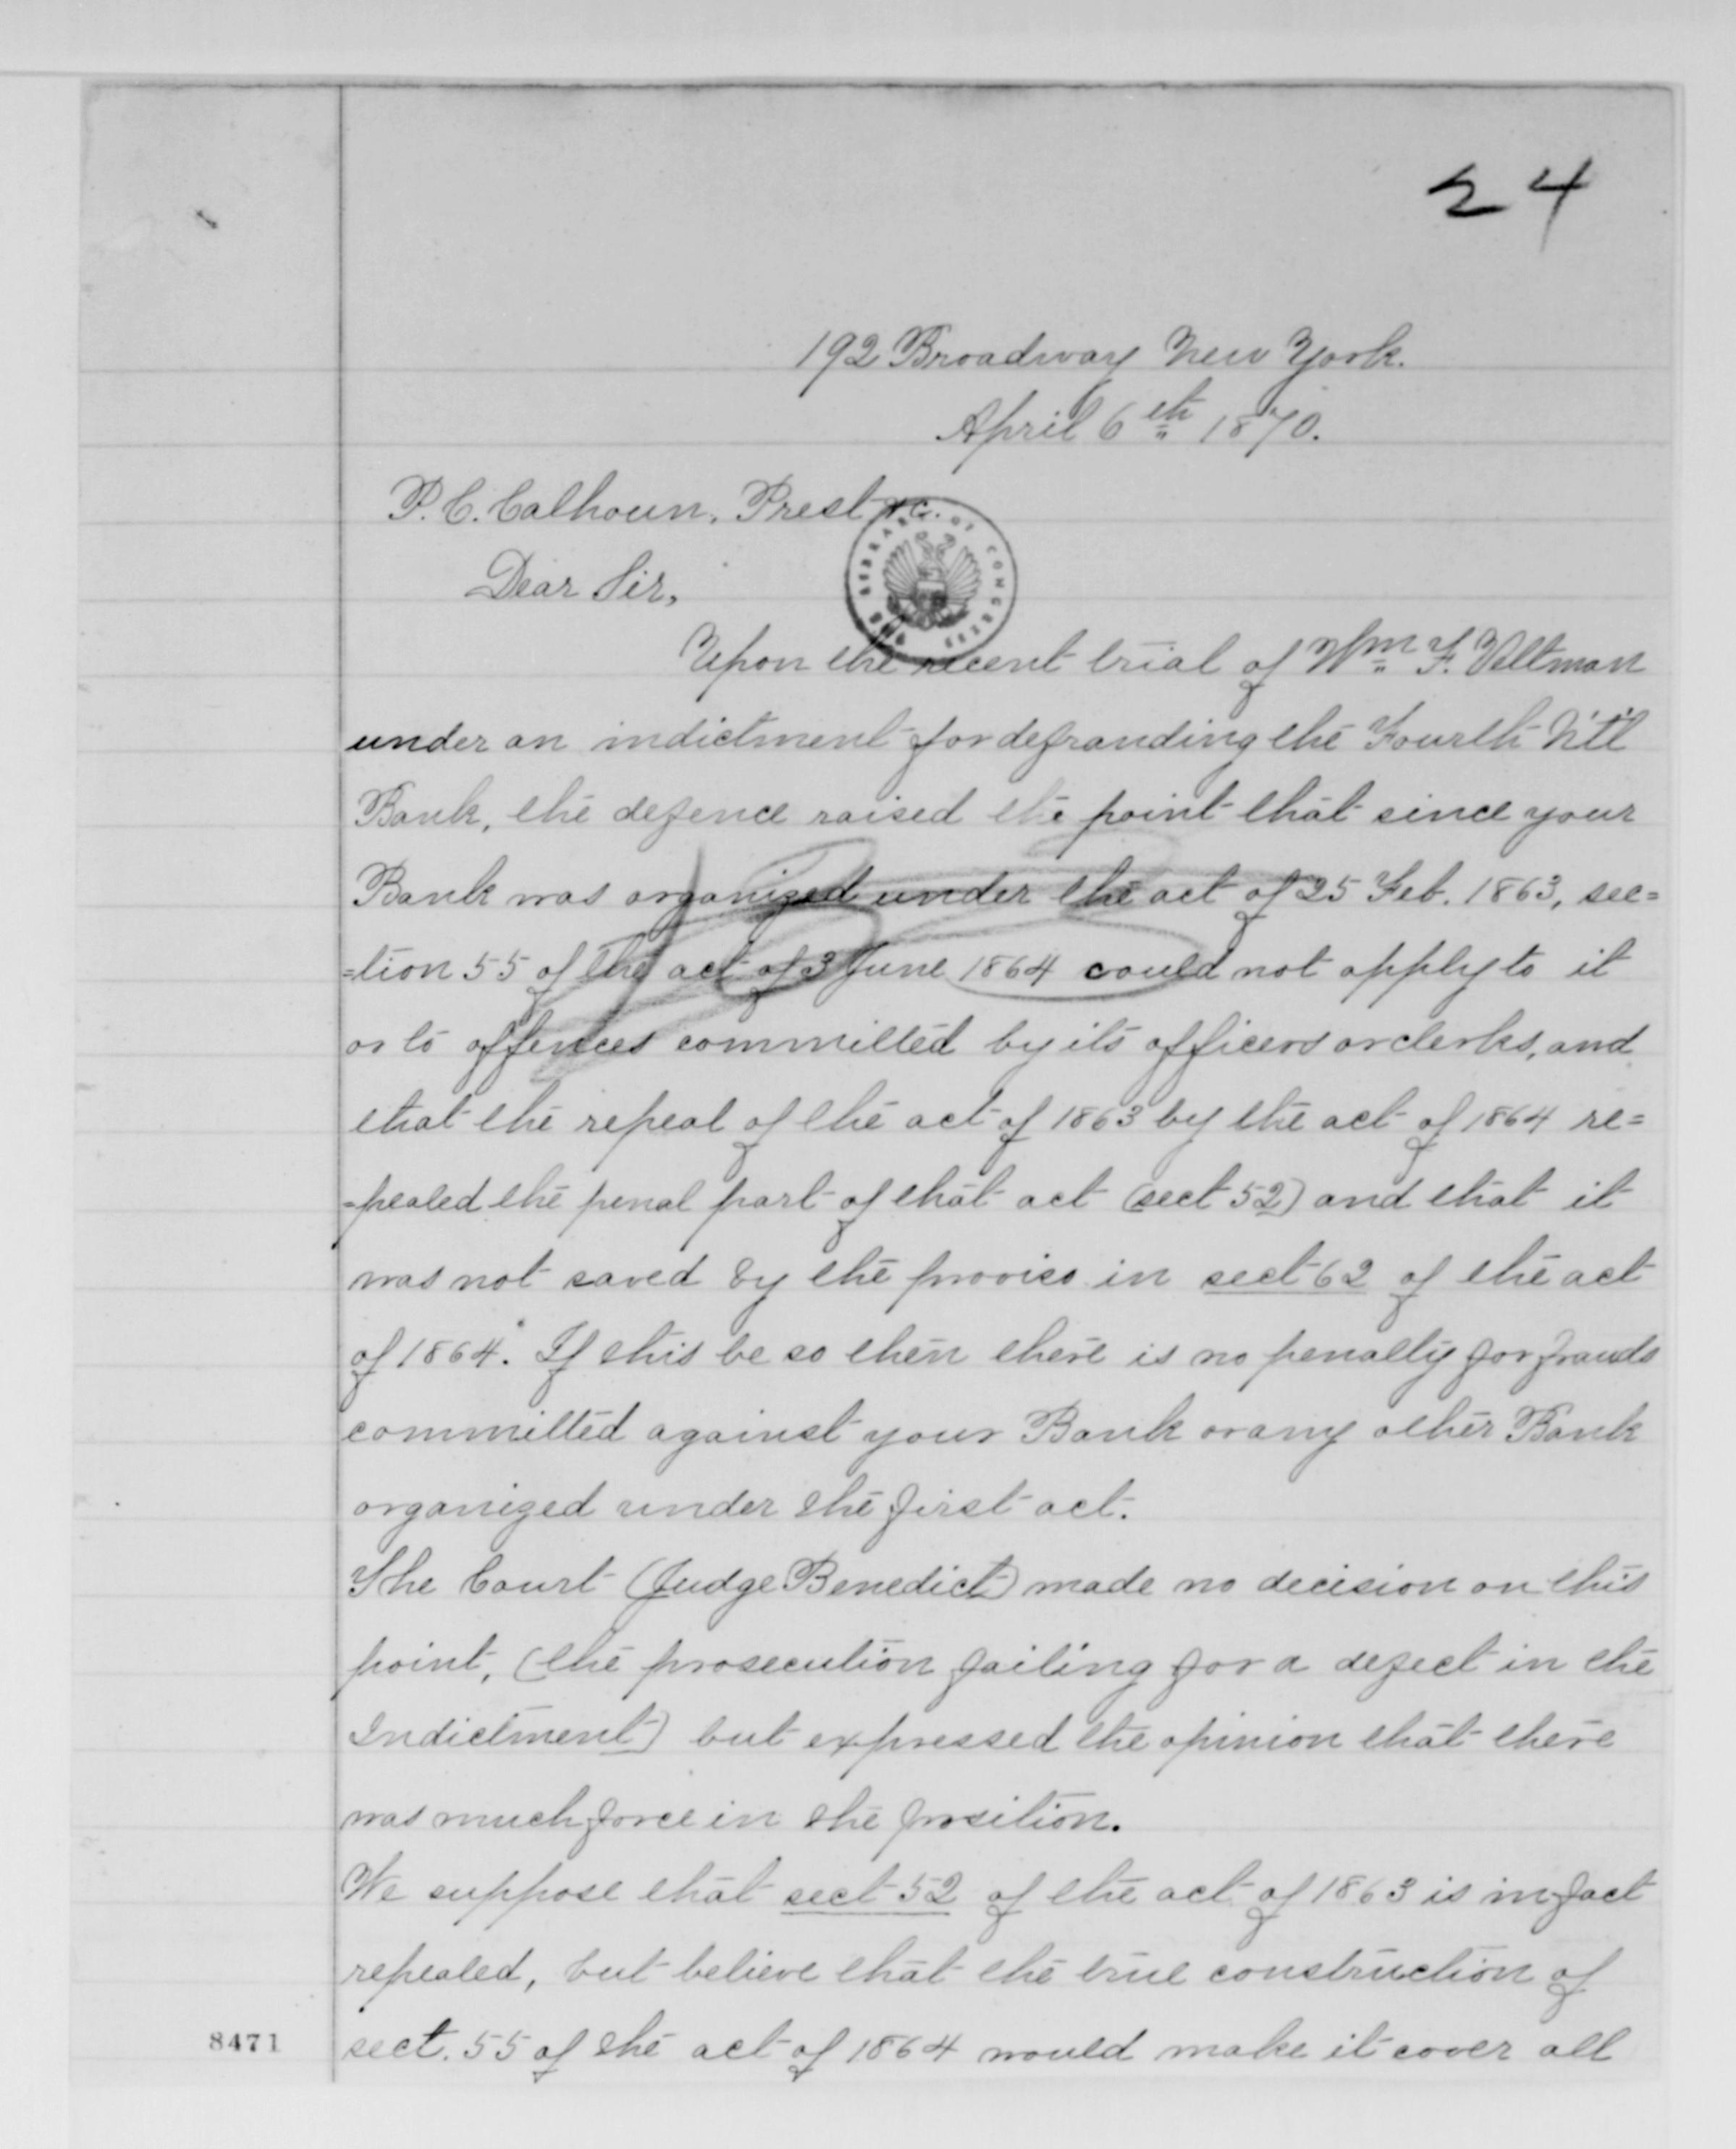 24
192 Broadway New York.
April 6th 1870.
P. C. Calhoun, Prest &c.
Dear Sir,
LIBRARY OF CONGRESS
Upon the recent trial of Wm F. Veltman
under an indictment for defrauding the Fourth N't'l
Bank, the defence raised the point that since your
Bank was organized under the act of 25 Feb. 1863, sec=
=tion 55 of the act of 3 June 1864 could not apply to it
or to offences committed by its officers or clerks, and
that the repeal of the act of 1863 by the act of 1864 re=
=pealed the penal part of that act (sect 52) and that it
was not saved by the proviso in sect 62 of the act
of 1864. If this be so then there is no penalty for frauds
committed against your Bank or any other Bank
organized under the first act.
The Court (Judge Benedict) made no decision on this
point, (the prosecution failing for a defect in the
Indictment) but expressed the opinion that there
was much force in the position.
We suppose that sect 52 of the act of 1863 is in fact
repealed, but believe that the true construction of
sect. 55 of the act of 1864 would make it cover all
8471